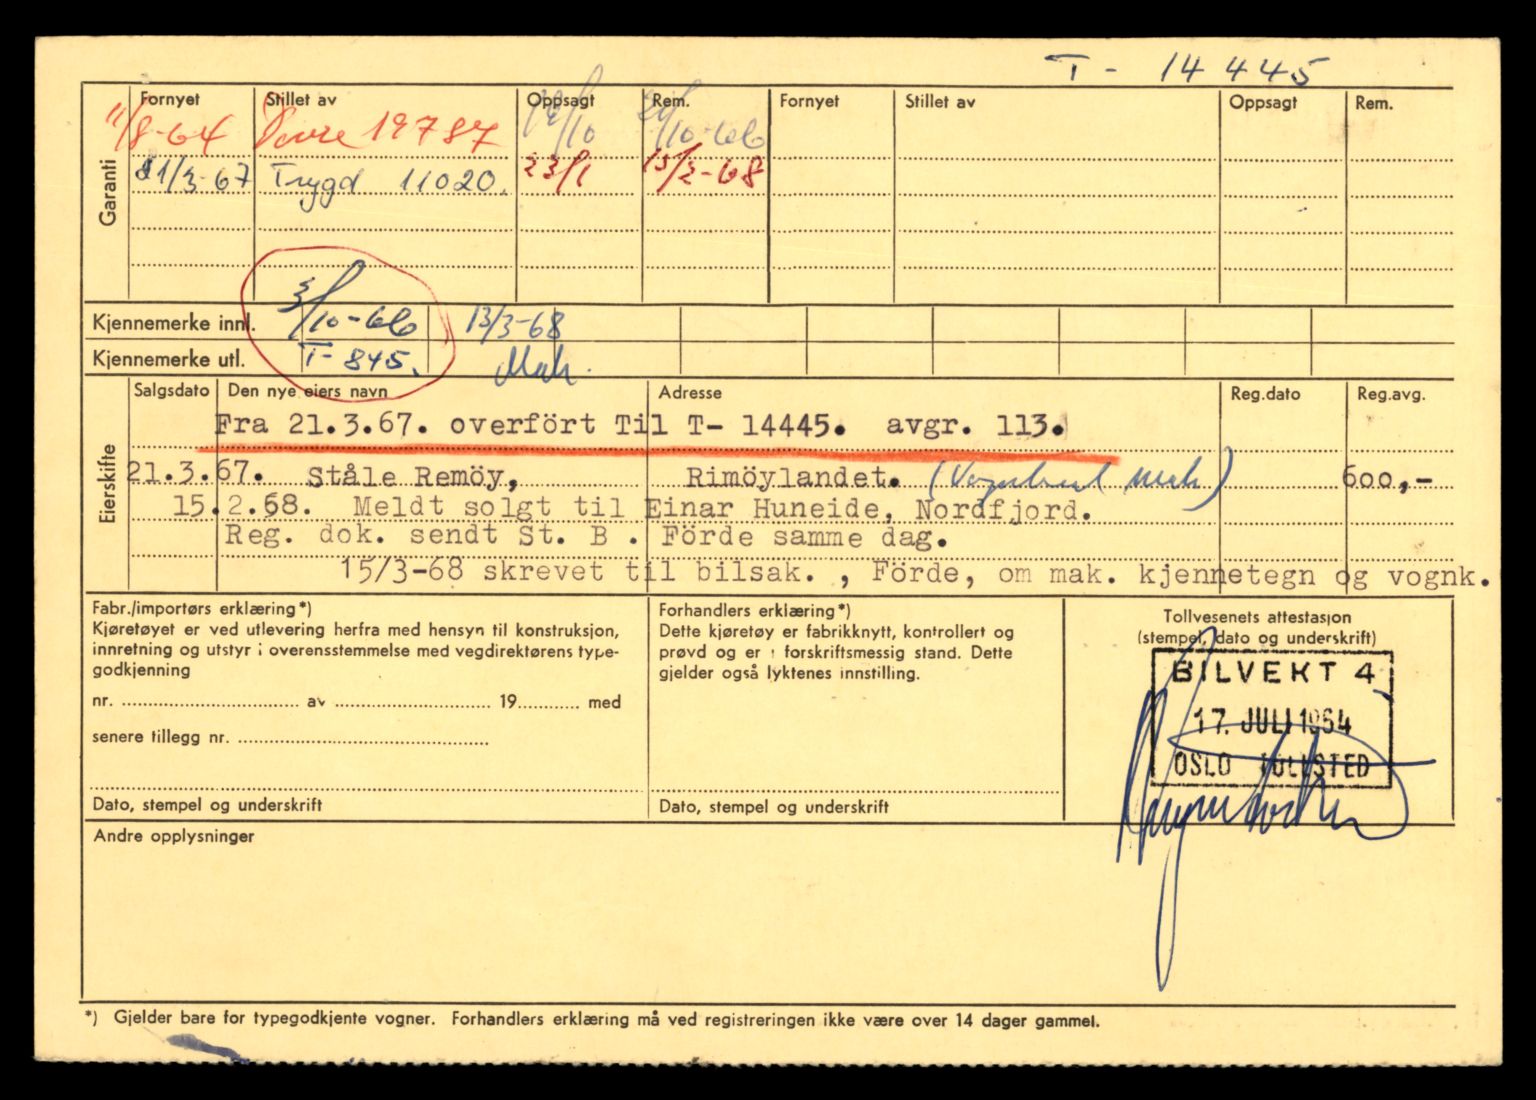 T - 14445
Fornyet Stillet av Oppsagt Rem. Fornyet Stillet av Oppsagt Rem.
11/8-64 19787 19/10 /10-66
21/3-67 Trygd 11020. 23/1 15/3-68
Garanti
Kjennemerke innl. 3/10-66 13/3-68
Kjennemerke utl. T- 845. Mak.
Salgsdato Den nye eiers navn Adresse Reg.dato Reg.avg.
Fra 21.3.67. overfört Til T- 14445. avgr. 113.
Eierskifte
21.3.67. Ståle Remöy, Rimöylandet. (Vognkort Mak) 600,-
15.2.68. Meldt solgt til Einar Huneide, Nordfjord.
Reg. dok. sendt St. B . Förde samme dag.
15/3-68 skrevet til bilsak. , Förde, om mak. kjennetegn og vognk.
Fabr./importørs erklæring*) Forhandlers erklæring*) Tollvesenets attestasjon
Kjøretøyet er ved utlevering herfra med hensyn til konstruksjon, Dette kjøretøy er fabrikknytt, kontrollert og (stempel, dato og underskrift)
innretning og utstyr i overensstemmelse med vegdirektørens type- prøvd og er i forskriftsmessig stand. Dette
godkjenning gjelder også lyktenes innstilling.
BILVEKT 4
nr. av 19 med
17. JULI 1964
senere tillegg nr.
OSLO TOLLSTED
Dato, stempel og underskrift Dato, stempel og underskrift
Andre opplysninger
*) Gjelder bare for typegodkjente vogner. Forhandlers erklæring må ved registreringen ikke være over 14 dager gammel.